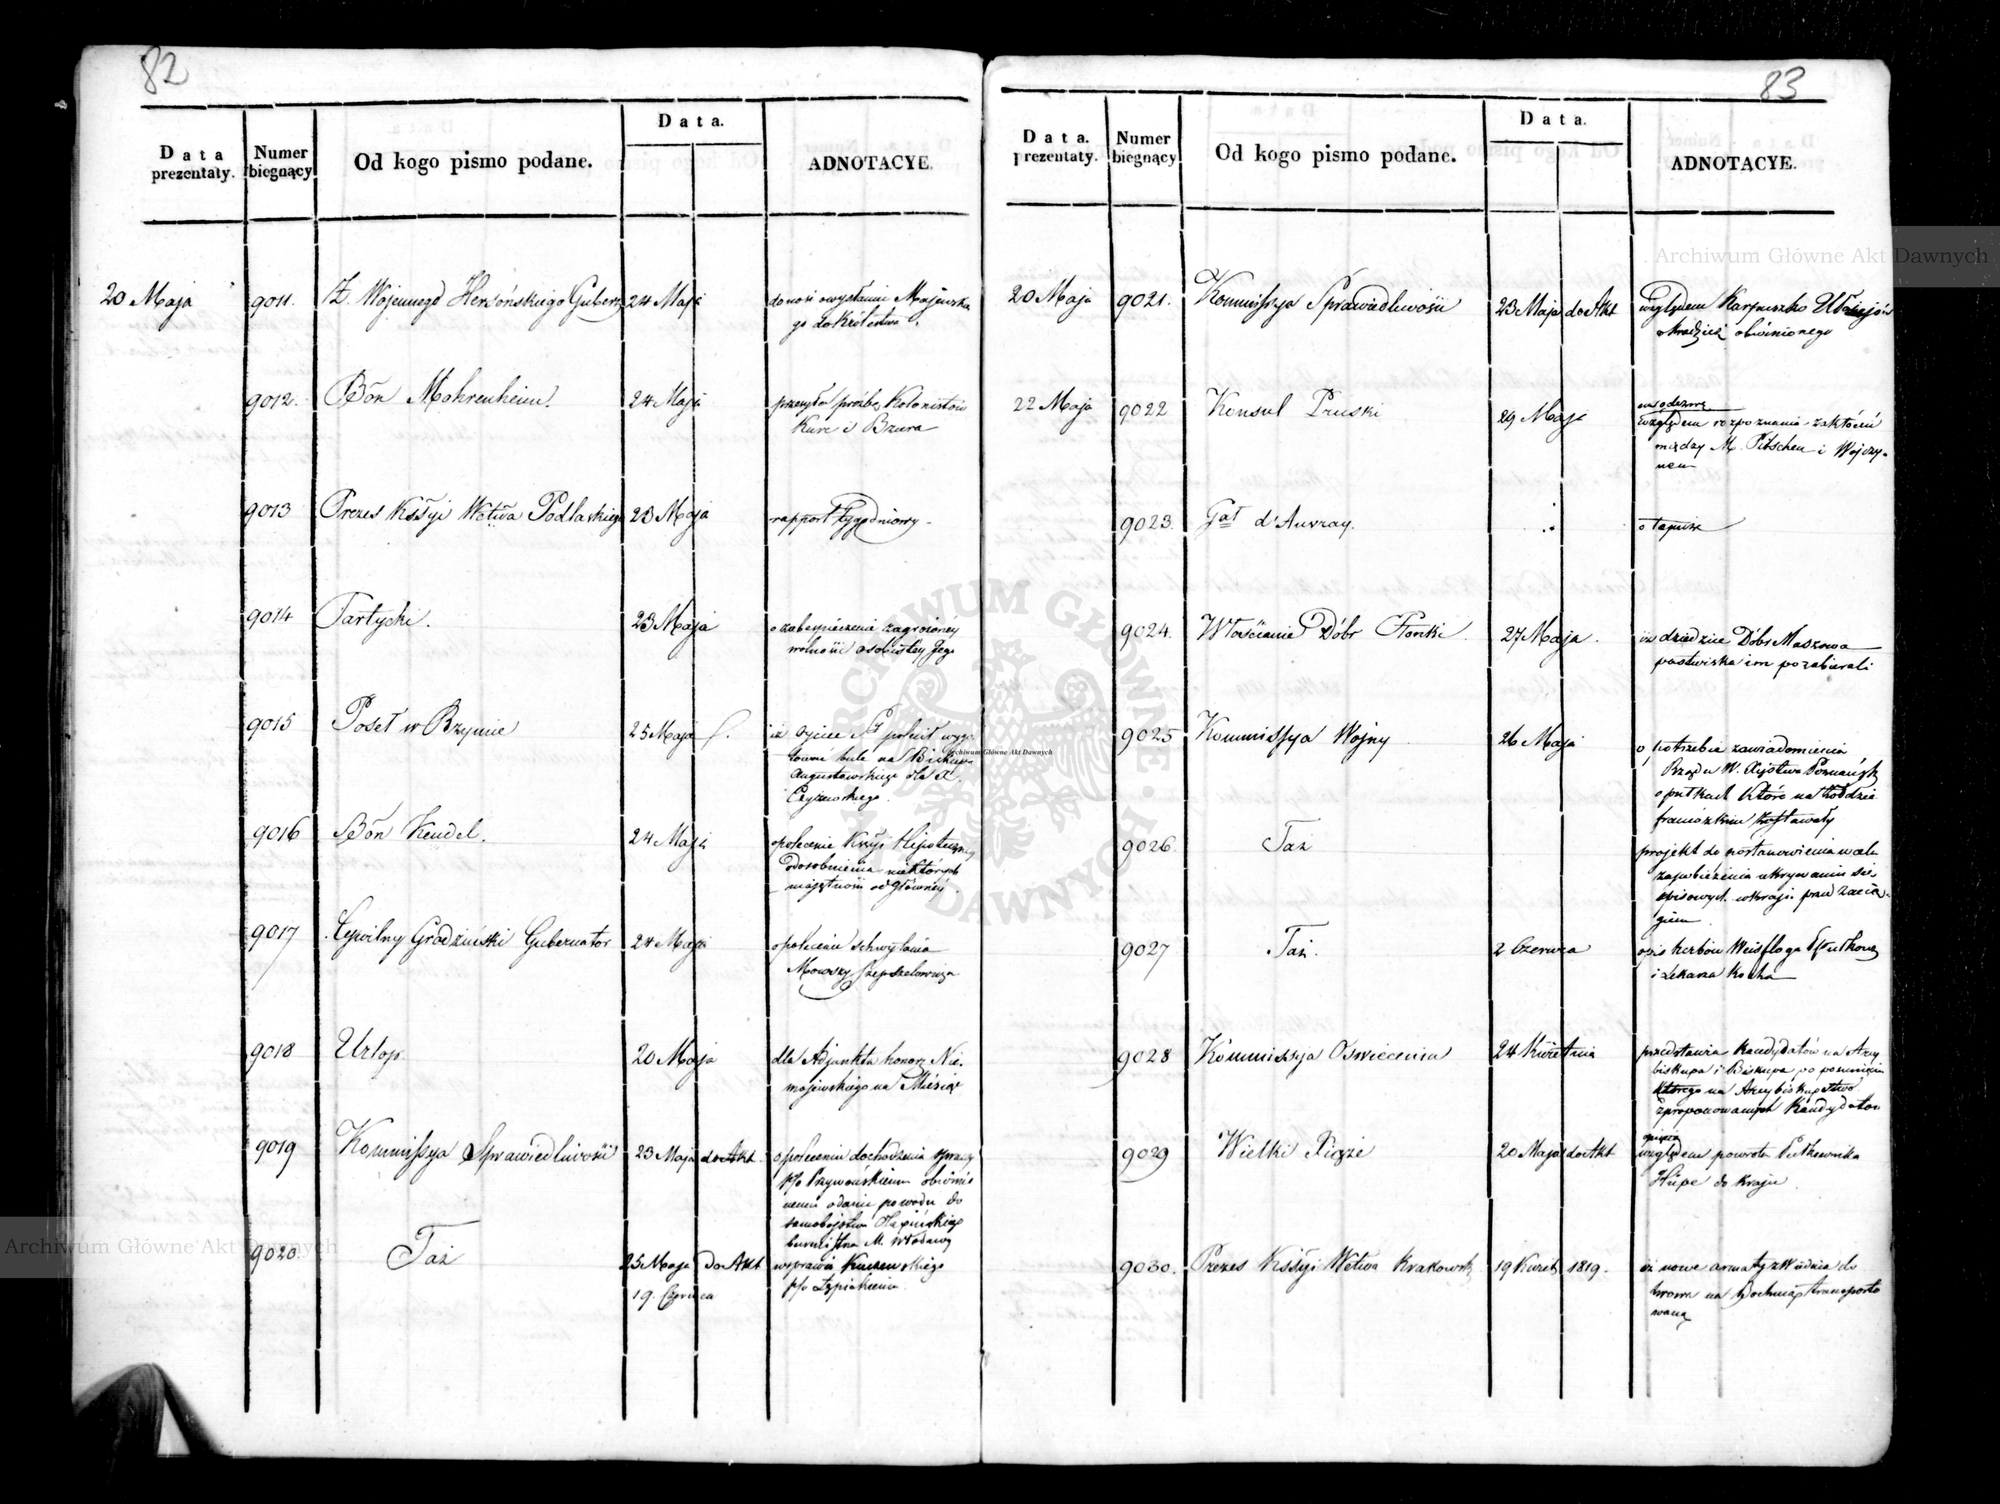 82
Data prezentaty.
Numer biegnący
Od kogo pismo podane.
Data.
ADNOTACYE.
20 Maja 9011. Z. Wojennego Hersońskiego Gubern 24 Maja donosi o wysłaniu Majewska
go do Królestwa.
9012. Bōn Mohrenheim. 24 Maja przesyła prośbę Kolonistów
Kurc i Bzura
9013 Prezes Kssyi Wctwa Podlaskiego 23 Maja rapport tygodniowy
9014 Tartycki. 23 Maja o zabezpieczenie zagrożoney
wolności osobistey jego
9015 Poseł w Rzymie 25 Maja iż Oyciec St. polecił wygo
tować bule na Biskupa
Augustowskiego dla X.
9016 Bōn Keudel. 24 Maja o polecenie Kssyi Hipoteczney
odosobnienia niektórych
majętności od główney.
9017 Cywilny Grodzieński Gubernator 24 Maja o poleceniu schwytania
Mowszy Szepszelowicza
9018 Urlop 20 Maja dla Adjunkta honor. Nie
mojewskiego na Miesiąc
9019 Kommissya Sprawiedliwości 23 Maja do Akt. o poleceniu dochodzenia sprawy
p/o obwinio
nemu o danie powodu do
samobójstwa
burmistrza M. Włodawy
9020. Taż 25 Maja do Akt w sprawie
19. Czerwca p/o
83
Data. prezentaty.
Numer biegnący
Od kogo pismo podane.
Data.
ADNOTACYE.
20 Maja 9021. Kommissya Sprawiedliwości 23 Maja do Akt względem
o kradzież obwinionego
22 Maja 9022 Konsul Pruski 29 Maja
względem rozpoznania zakłóceń
między M. Pitschen i Wójczy-
nem
9023. Gał d'Auvray. o tęmże
9024. Włościanie Dóbr 27 Maja. iż dziedzice Dóbr Maszewa
pastwiska im pozabierali
9025 Kommissya Woyny 26 Maja o potrzebie zawiadomienia
Rządu W. Xięstwa Poznańsk
o pułkach które na żołdzie
francuzkim zostawały
9026 Taż projekt do postanowienia w celu
zapobieżenia ukrywaniu się
spisowych w kraju przed zacią-
giem
9027 Taż. 2 Czerwca
i Lekarza Kocha
9028 Kommissya Oswiecenia 24 Kwietnia przedstawia Kandydatów na Arcy
biskupa i Biskupa po posunięciu
którego na Arcybiskupstwo
zproponowanych Kandydatów
9029 Wielki Xiąże 20 Maja do Akt
względem powrotu Pułkownika
Hüpe do kraju
9030. Prezes Kssyi Wctwa Krakowsk 19 Kwiet 1819. iż nowe armaty z Wiednia do
Lwowa na Bochnią transporto
waną
Archiwum Główne Akt Dawnych
Archiwum Główne Akt Dawnych
Archiwum Główne Akt Dawnych
ARCHIWUM GŁÓWNE AKT DAWNYCH